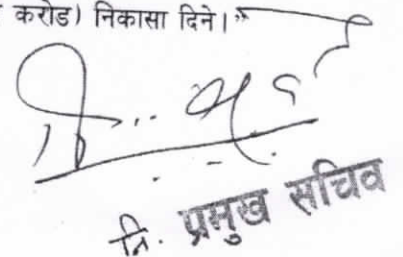 करोड) निकासा दिने।"
नि. प्रमुख सचिव